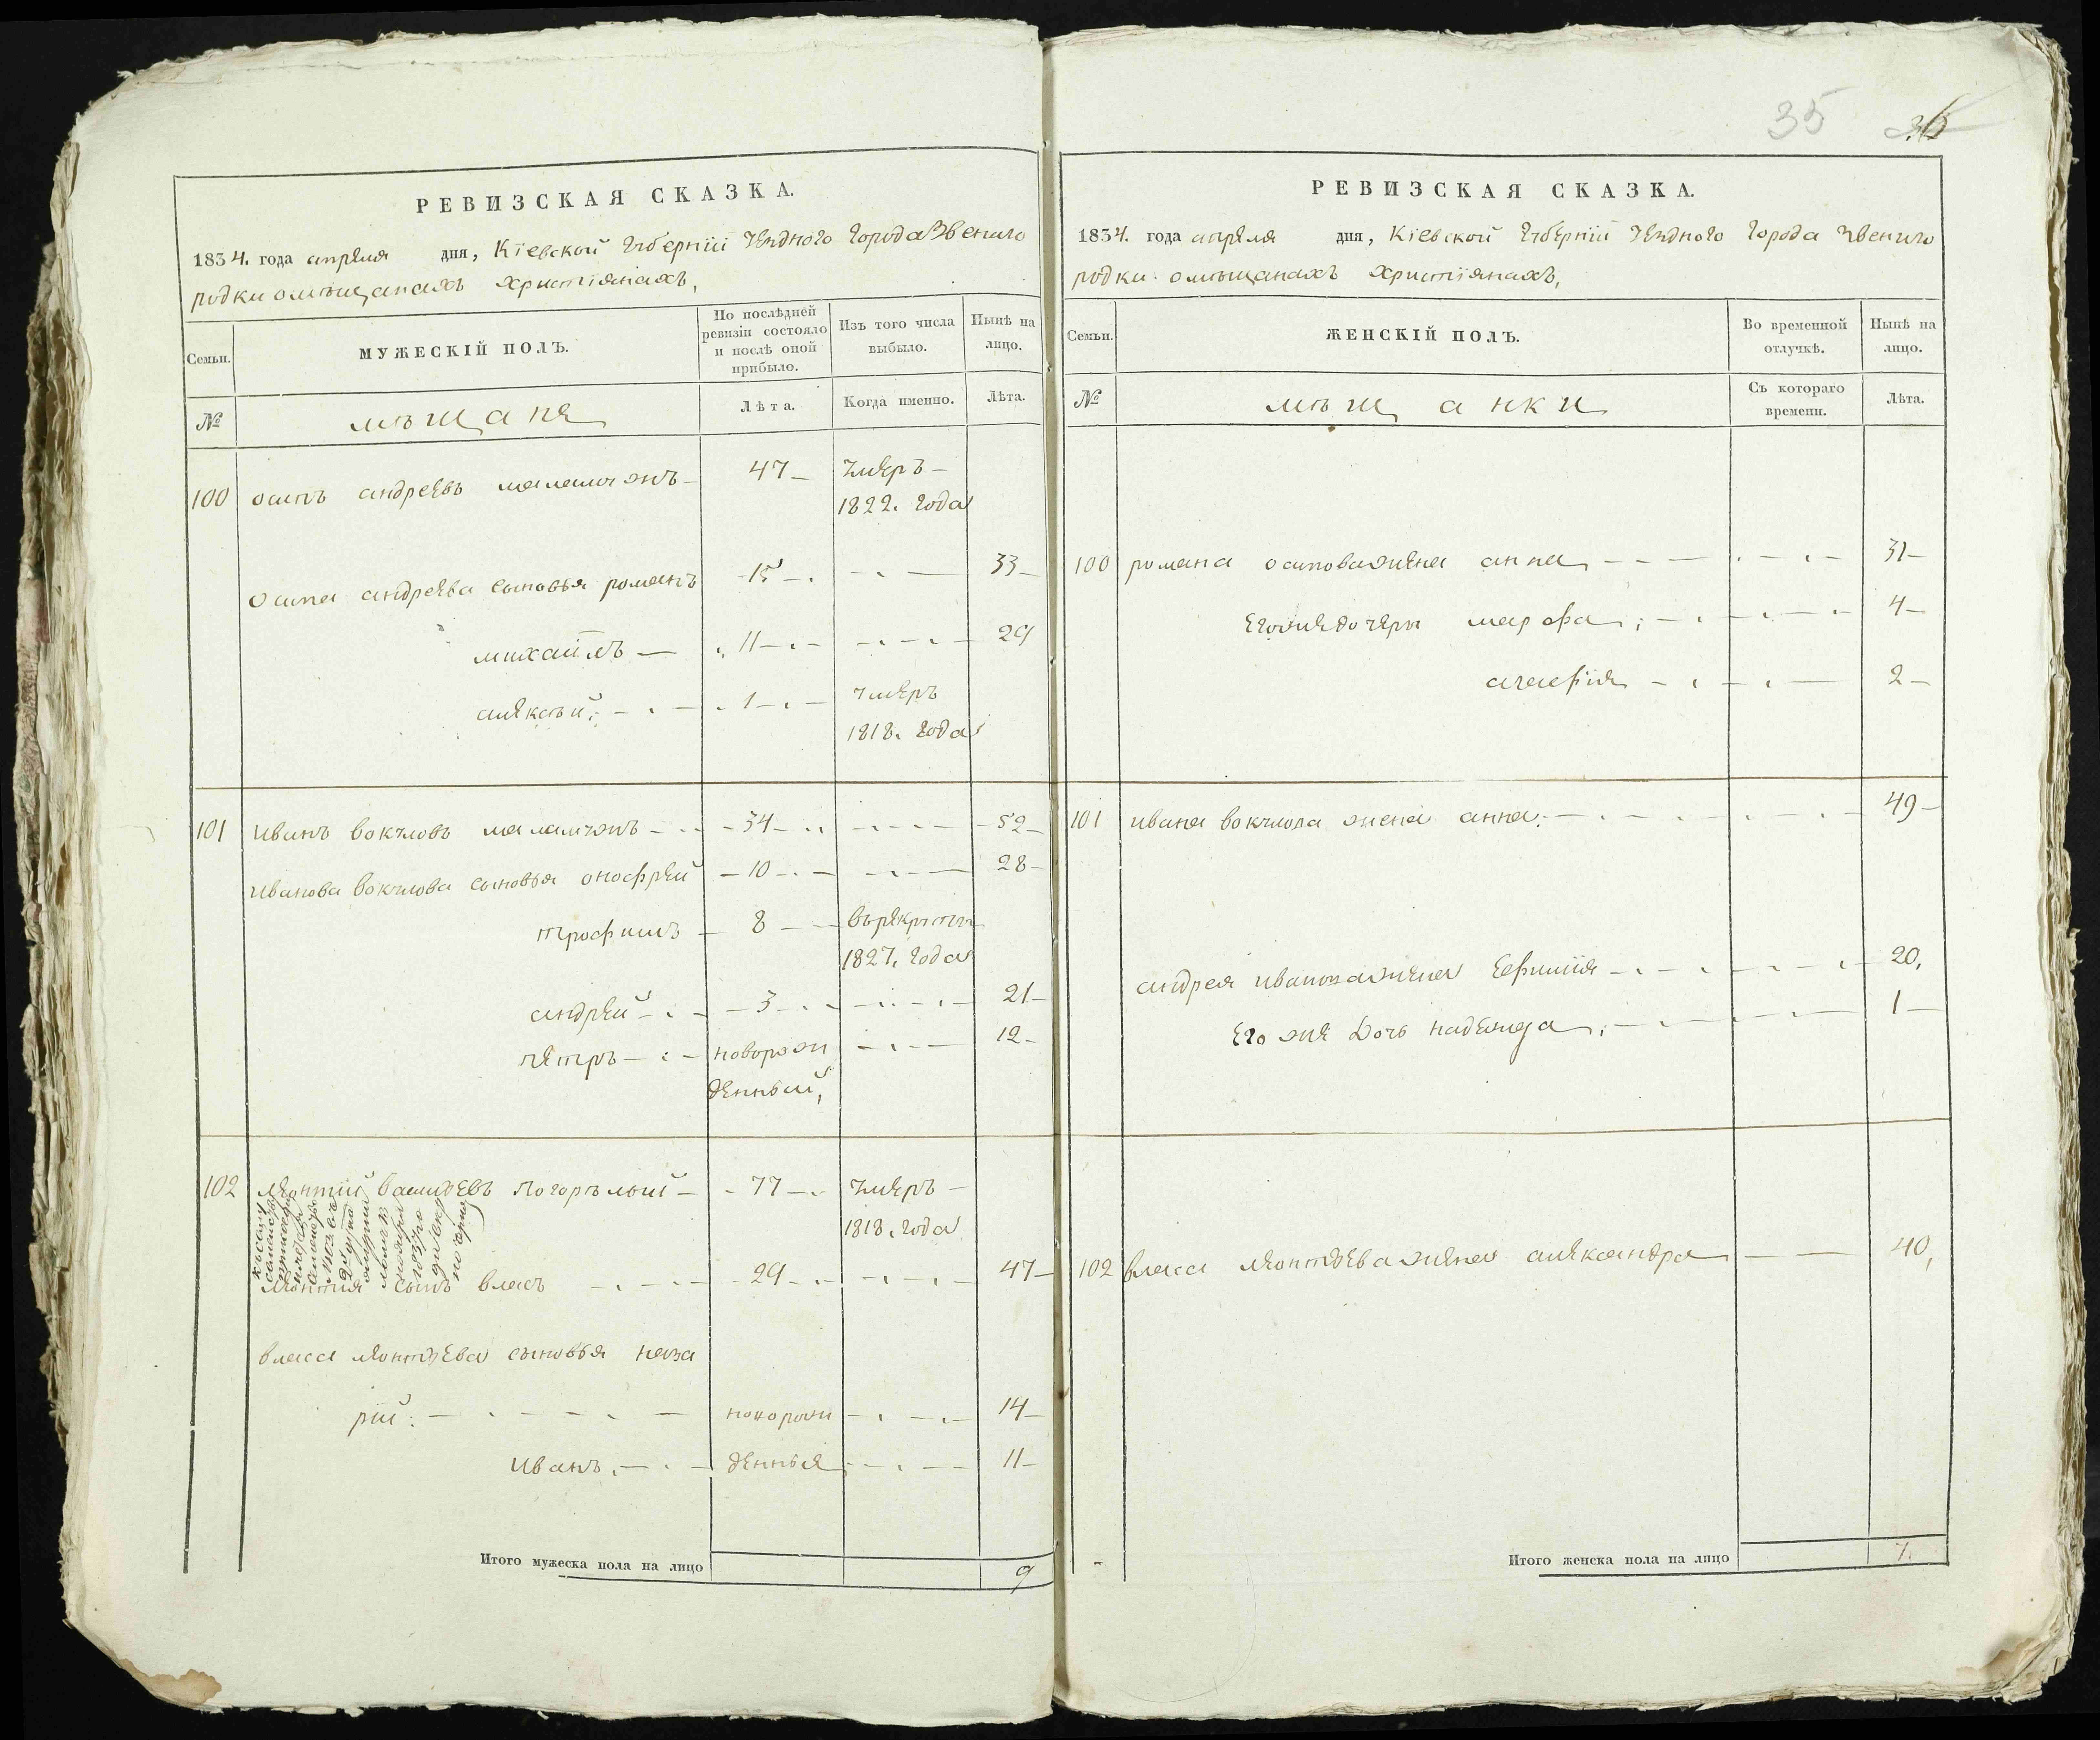 35 36
РЕВИЗСКАЯ СКАЗКА.
1834. года апреля дня, Кіевской Губерніи Уезднаго Города Звениго
родки о мѣщанахъ христіянахъ,
Семьи. МУЖЕСКІЙ ПОЛЪ. По послѣдней ревизіи состояло и послѣ оной прибыло. Изъ того числа выбыло. Нынѣ на лицо.
№ мѣщане Лѣта. Когда именно. Лѣта.
100 осипъ андреевъ 47 умеръ
1822. года
осипа андреева сыновья романъ 15 33
михайлъ 11 29
алексѣй 1 умеръ
1818. года
101 иванъ вакуловъ 34 52
иванова вакулова сыновья онофрей 10 28
трофимъ 8 въ рекруты
1827. года
андрей 3 21
петръ новорож 12
денный,
102 леонтій василіевъ погорѣлый 77 умеръ
1818. года
леонтия сынъ власъ 29 47
власа леонтьева сыновья наза
рій новорож 14
иванъ денные 11
Итого мужеска пола на лицо 9
РЕВИЗСКАЯ СКАЗКА.
1834. года апреля дня, Кіевской Губерніи Уезднаго Города Звениго
родки о мѣщанахъ христіянахъ,
Семьи. ЖЕНСКІЙ ПОЛЪ. Во временной отлучкѣ. Нынѣ на лицо.
№ мѣщанки Съ котораго времени. Лѣта.
100 романа осипова жена анна 31
его же дочери марфа 4
агафія 2
101 ивана вакулова жена анна 49
андрея иванова жена ефимія 20,
его же дочь надежда 1
102 власа леонтьева жена александра 40,
Итого женска пола на лицо 7.